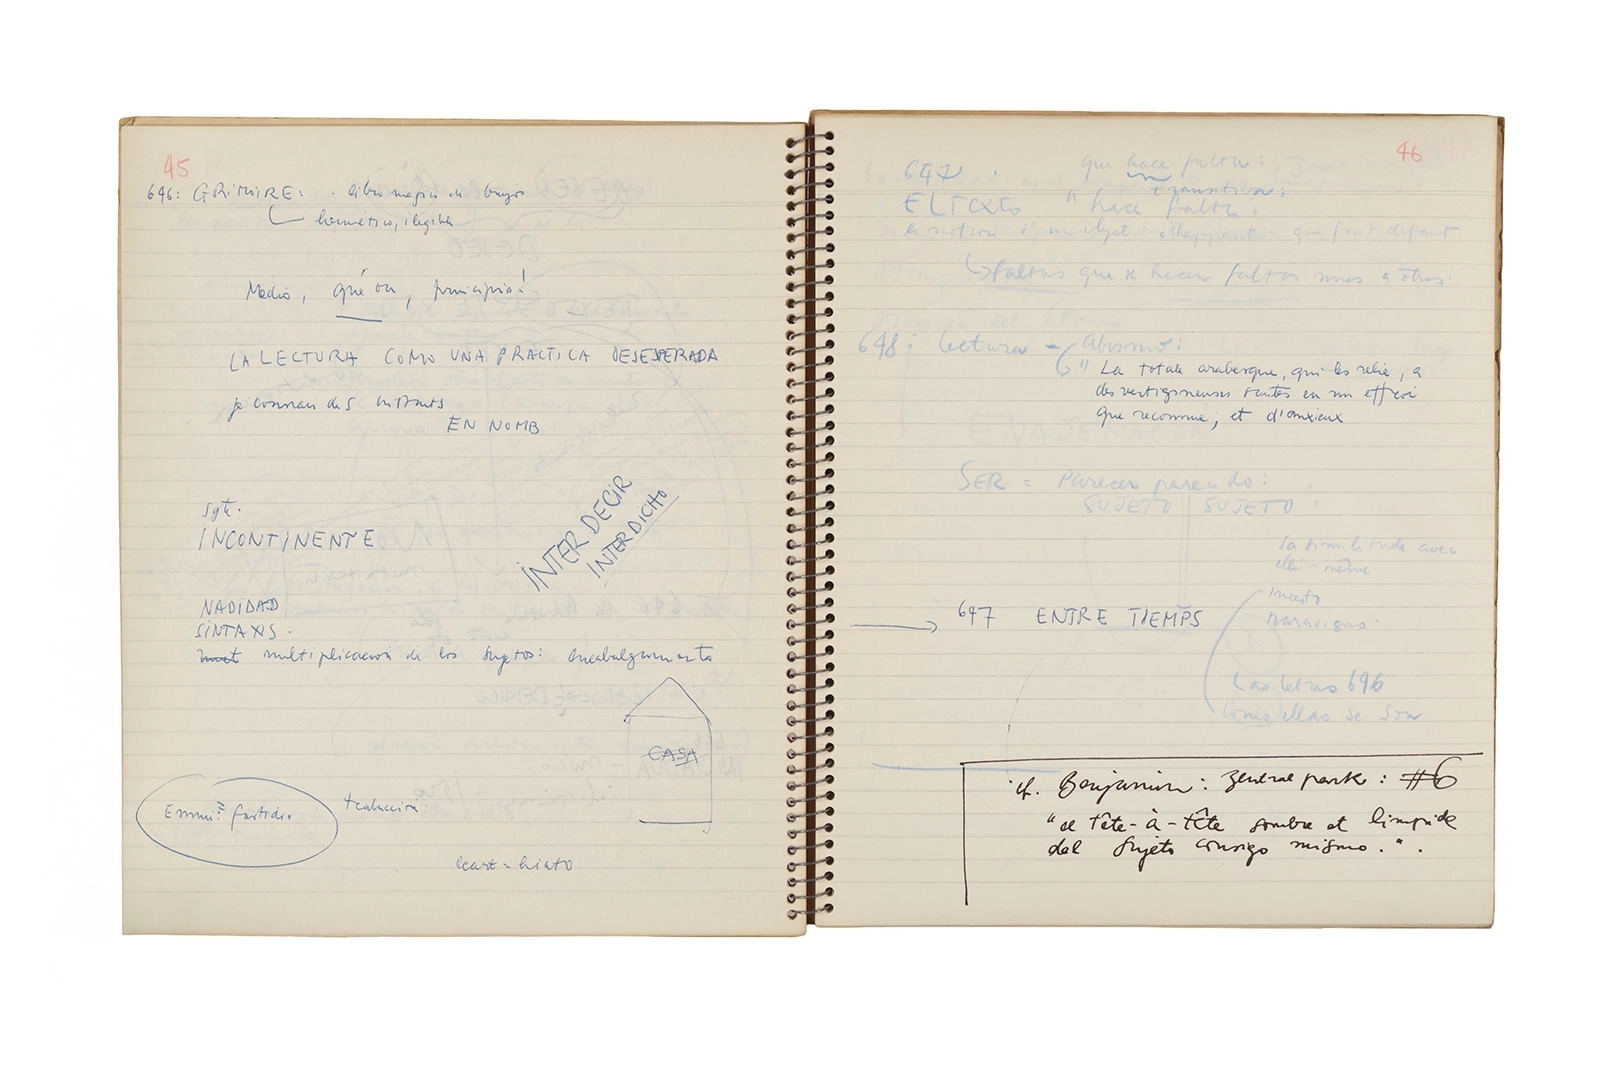 45
646: GRIMOIRE: . libro mágico de brujos
hermético, ilegible
Medio, que on, principio!
LA LECTURA COMO UNA PRACTICA DESESPERADA
je connais des instants
EN NOMB
INTERDECIR
INTERDICHO
Sgte.
INCONTINENTE
NADIDAD
SINTAXIS.
multiplicación de los sujetos: encabalgamiento
CASA
traducción.
écart = hiato
46
647 : que hace falta:
transitiva:
EL TEXTO "hace falta:
la notion d'un objet échappant. qui fait défaut
faltas que se hacen faltas unas a otras.
648: lectura - Abismo:
" La totale arabesque, qui les relie, a
de vertigineuses sautes en un effroi
que reconnue; et d'anxieux
SER = Parecer parecido:
SUJETO SUJETO
la similitude avec
elle-même
647 ENTRE TIEMPS
paradigma.
Las letras 696
como ellas se son
cf. Benjamin: Zentral park: #6
"el tête-à-tête sombre et limpide
del sujeto consigo mismo.".